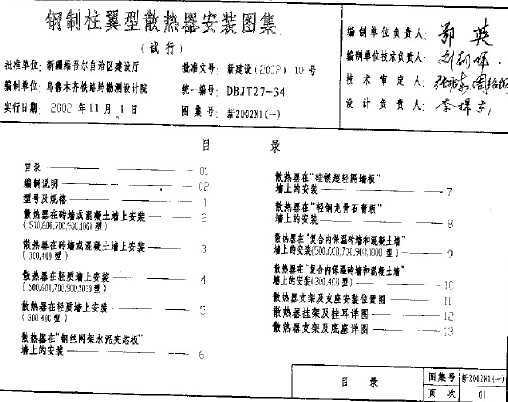 钢制柱翼型散热器安装图集
(试行)
批准单位: 新疆维吾尔自治区建设厅
批准文号: 新建设(2002)10号
编制单位: 乌鲁木齐铁路勘测设计院
统一编号: DBJT27-34
实行日期: 2002年11月1日
图集号: 新2002N1(一)
编制单位负责人:
编制单位技术负责人:
技术审定人:
设计负责人:
目 录
目录 01
编制说明 02
型号及规格 1
散热器在砖墙或混凝土墙上安装 2
散热器在砖墙或混凝土墙上安装 3
(300,400型)
散热器在轻质墙上安装 4
散热器在轻质墙上安装 5
(300,400型)
散热器在“钢丝网架水泥夹芯板”
墙上的安装 6
散热器在“硅镁超轻隔墙板”
墙上的安装 7
散热器在“轻钢龙骨石膏板”
墙上的安装 8
散热器在“复合内保温砖墙和混凝土墙”
墙上的安装(500,600,700,900,1000型) 9
散热器在“复合内保温砖墙和混凝土墙”
墙上的安装(300,400型) 10
散热器支架及支座安装位置图 11
散热器挂架及挂耳详图 12
散热器支架及底座详图 13
目 录
图集号 新2002N1(一)
页次 01